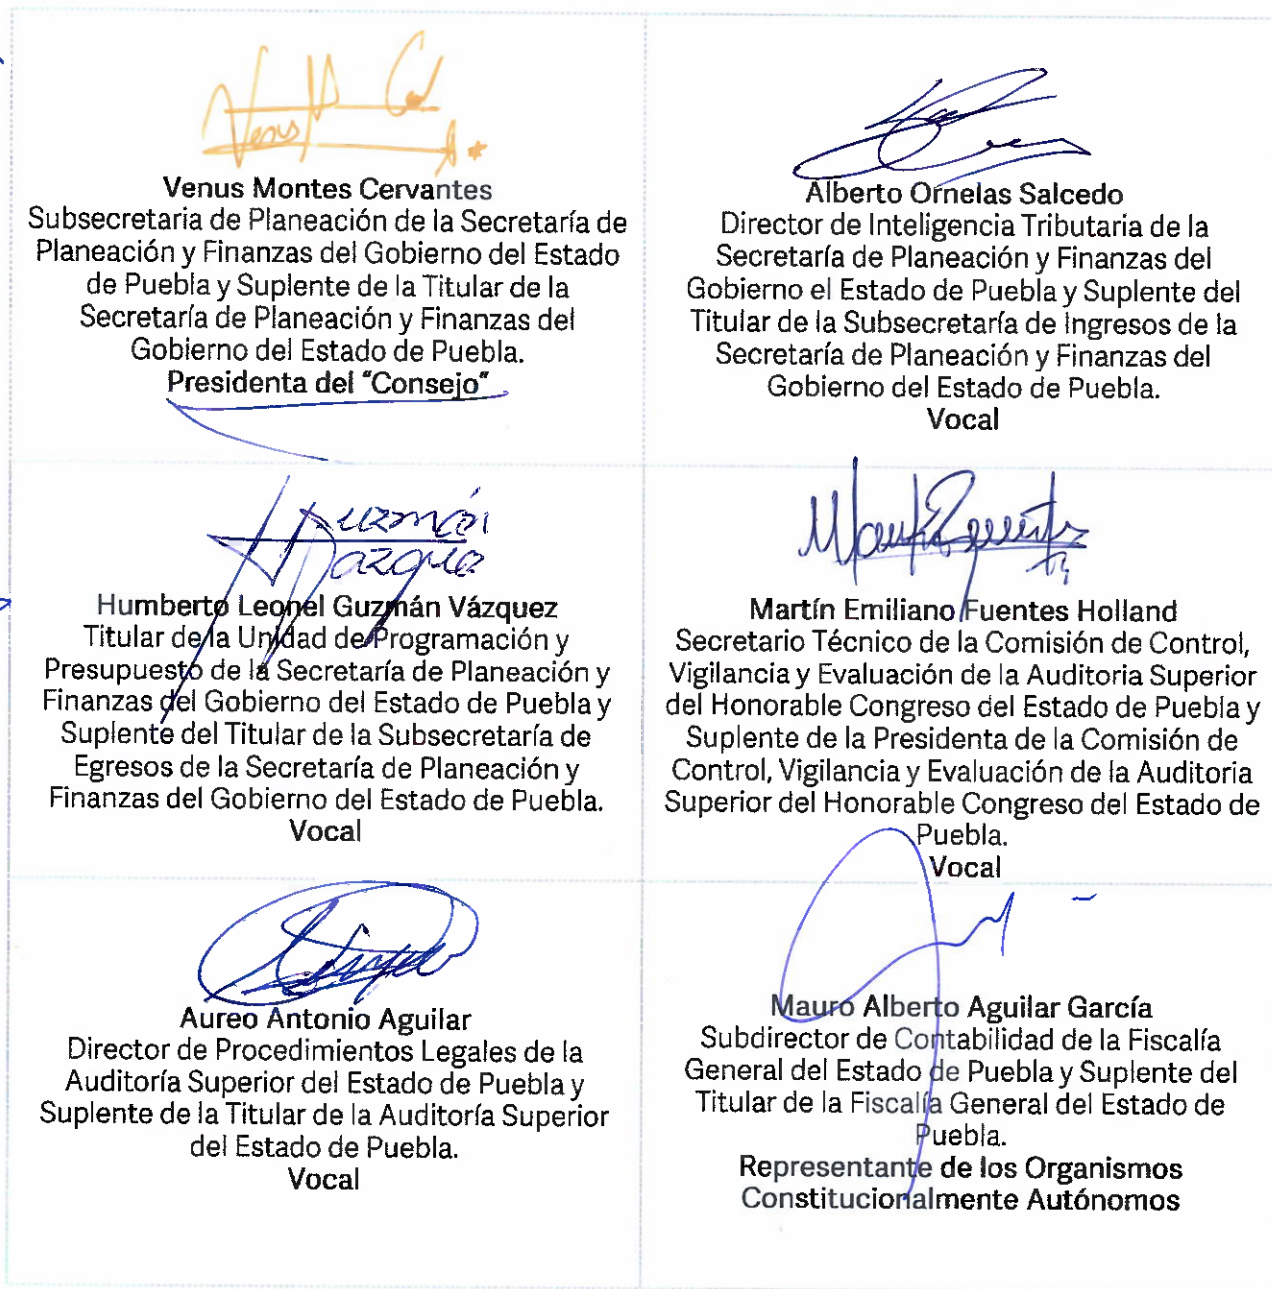 Venus
Venus Montes Cervantes
Subsecretaria de Planeación de la Secretaría de
Planeación y Finanzas del Gobierno del Estado
de Puebla y Suplente de la Titular de la
Secretaría de Planeación y Finanzas del
Gobierno del Estado de Puebla.
Presidenta del "Consejo"
Alberto Ornelas Salcedo
Director de Inteligencia Tributaria de la
Secretaría de Planeación y Finanzas del
Gobierno el Estado de Puebla y Suplente del
Titular de la Subsecretaría de Ingresos de la
Secretaría de Planeación y Finanzas del
Gobierno del Estado de Puebla.
Vocal
Guzmán
Vazquez
Humberto Leonel Guzmán Vázquez
Titular de la Unidad de Programación y
Presupuesto de la Secretaría de Planeación y
Finanzas del Gobierno del Estado de Puebla y
Suplente del Titular de la Subsecretaría de
Egresos de la Secretaría de Planeación y
Finanzas del Gobierno del Estado de Puebla.
Vocal
Martín Emiliano Fuentes Holland
Secretario Técnico de la Comisión de Control,
Vigilancia y Evaluación de la Auditoria Superior
del Honorable Congreso del Estado de Puebla y
Suplente de la Presidenta de la Comisión de
Control, Vigilancia y Evaluación de la Auditoria
Superior del Honorable Congreso del Estado de
Puebla.
Vocal
Aureo Antonio Aguilar
Director de Procedimientos Legales de la
Auditoría Superior del Estado de Puebla y
Suplente de la Titular de la Auditoría Superior
del Estado de Puebla.
Vocal
Mauro Alberto Aguilar García
Subdirector de Contabilidad de la Fiscalía
General del Estado de Puebla y Suplente del
Titular de la Fiscalía General del Estado de
Puebla.
Representante de los Organismos
Constitucionalmente Autónomos